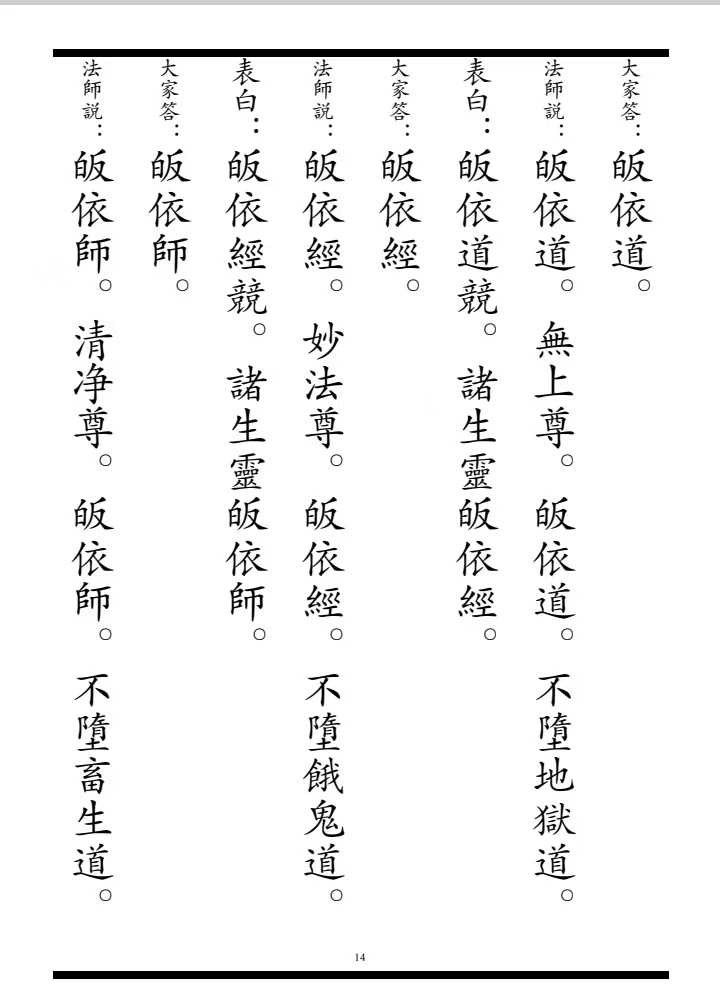 大家答：皈依道。
法師説：皈依道。無上尊。皈依道。不墮地獄道。
表白：皈依道競。諸生靈皈依經。
大家答：皈依經。
法師説：皈依經。妙法尊。皈依經。不墮餓鬼道。
表白：皈依經競。諸生靈皈依師。
大家答：皈依師。
法師説：皈依師。清净尊。皈依師。不墮畜生道。
14